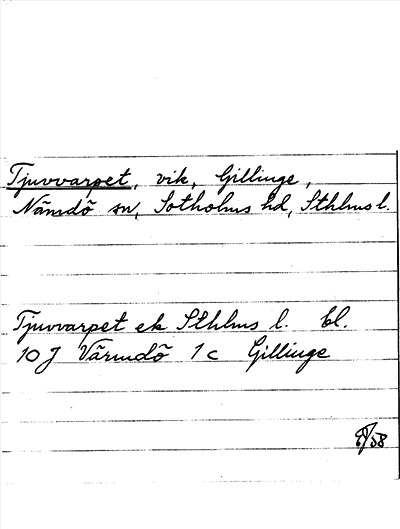 Tjuvvarpet, vik, Gillinge,
Nämdö sn, Sotholms hd, Sthlms l.
Tjuvvarpet ek Sthlms l. bl.
10 J Värmdö 1 c Gillinge
/58